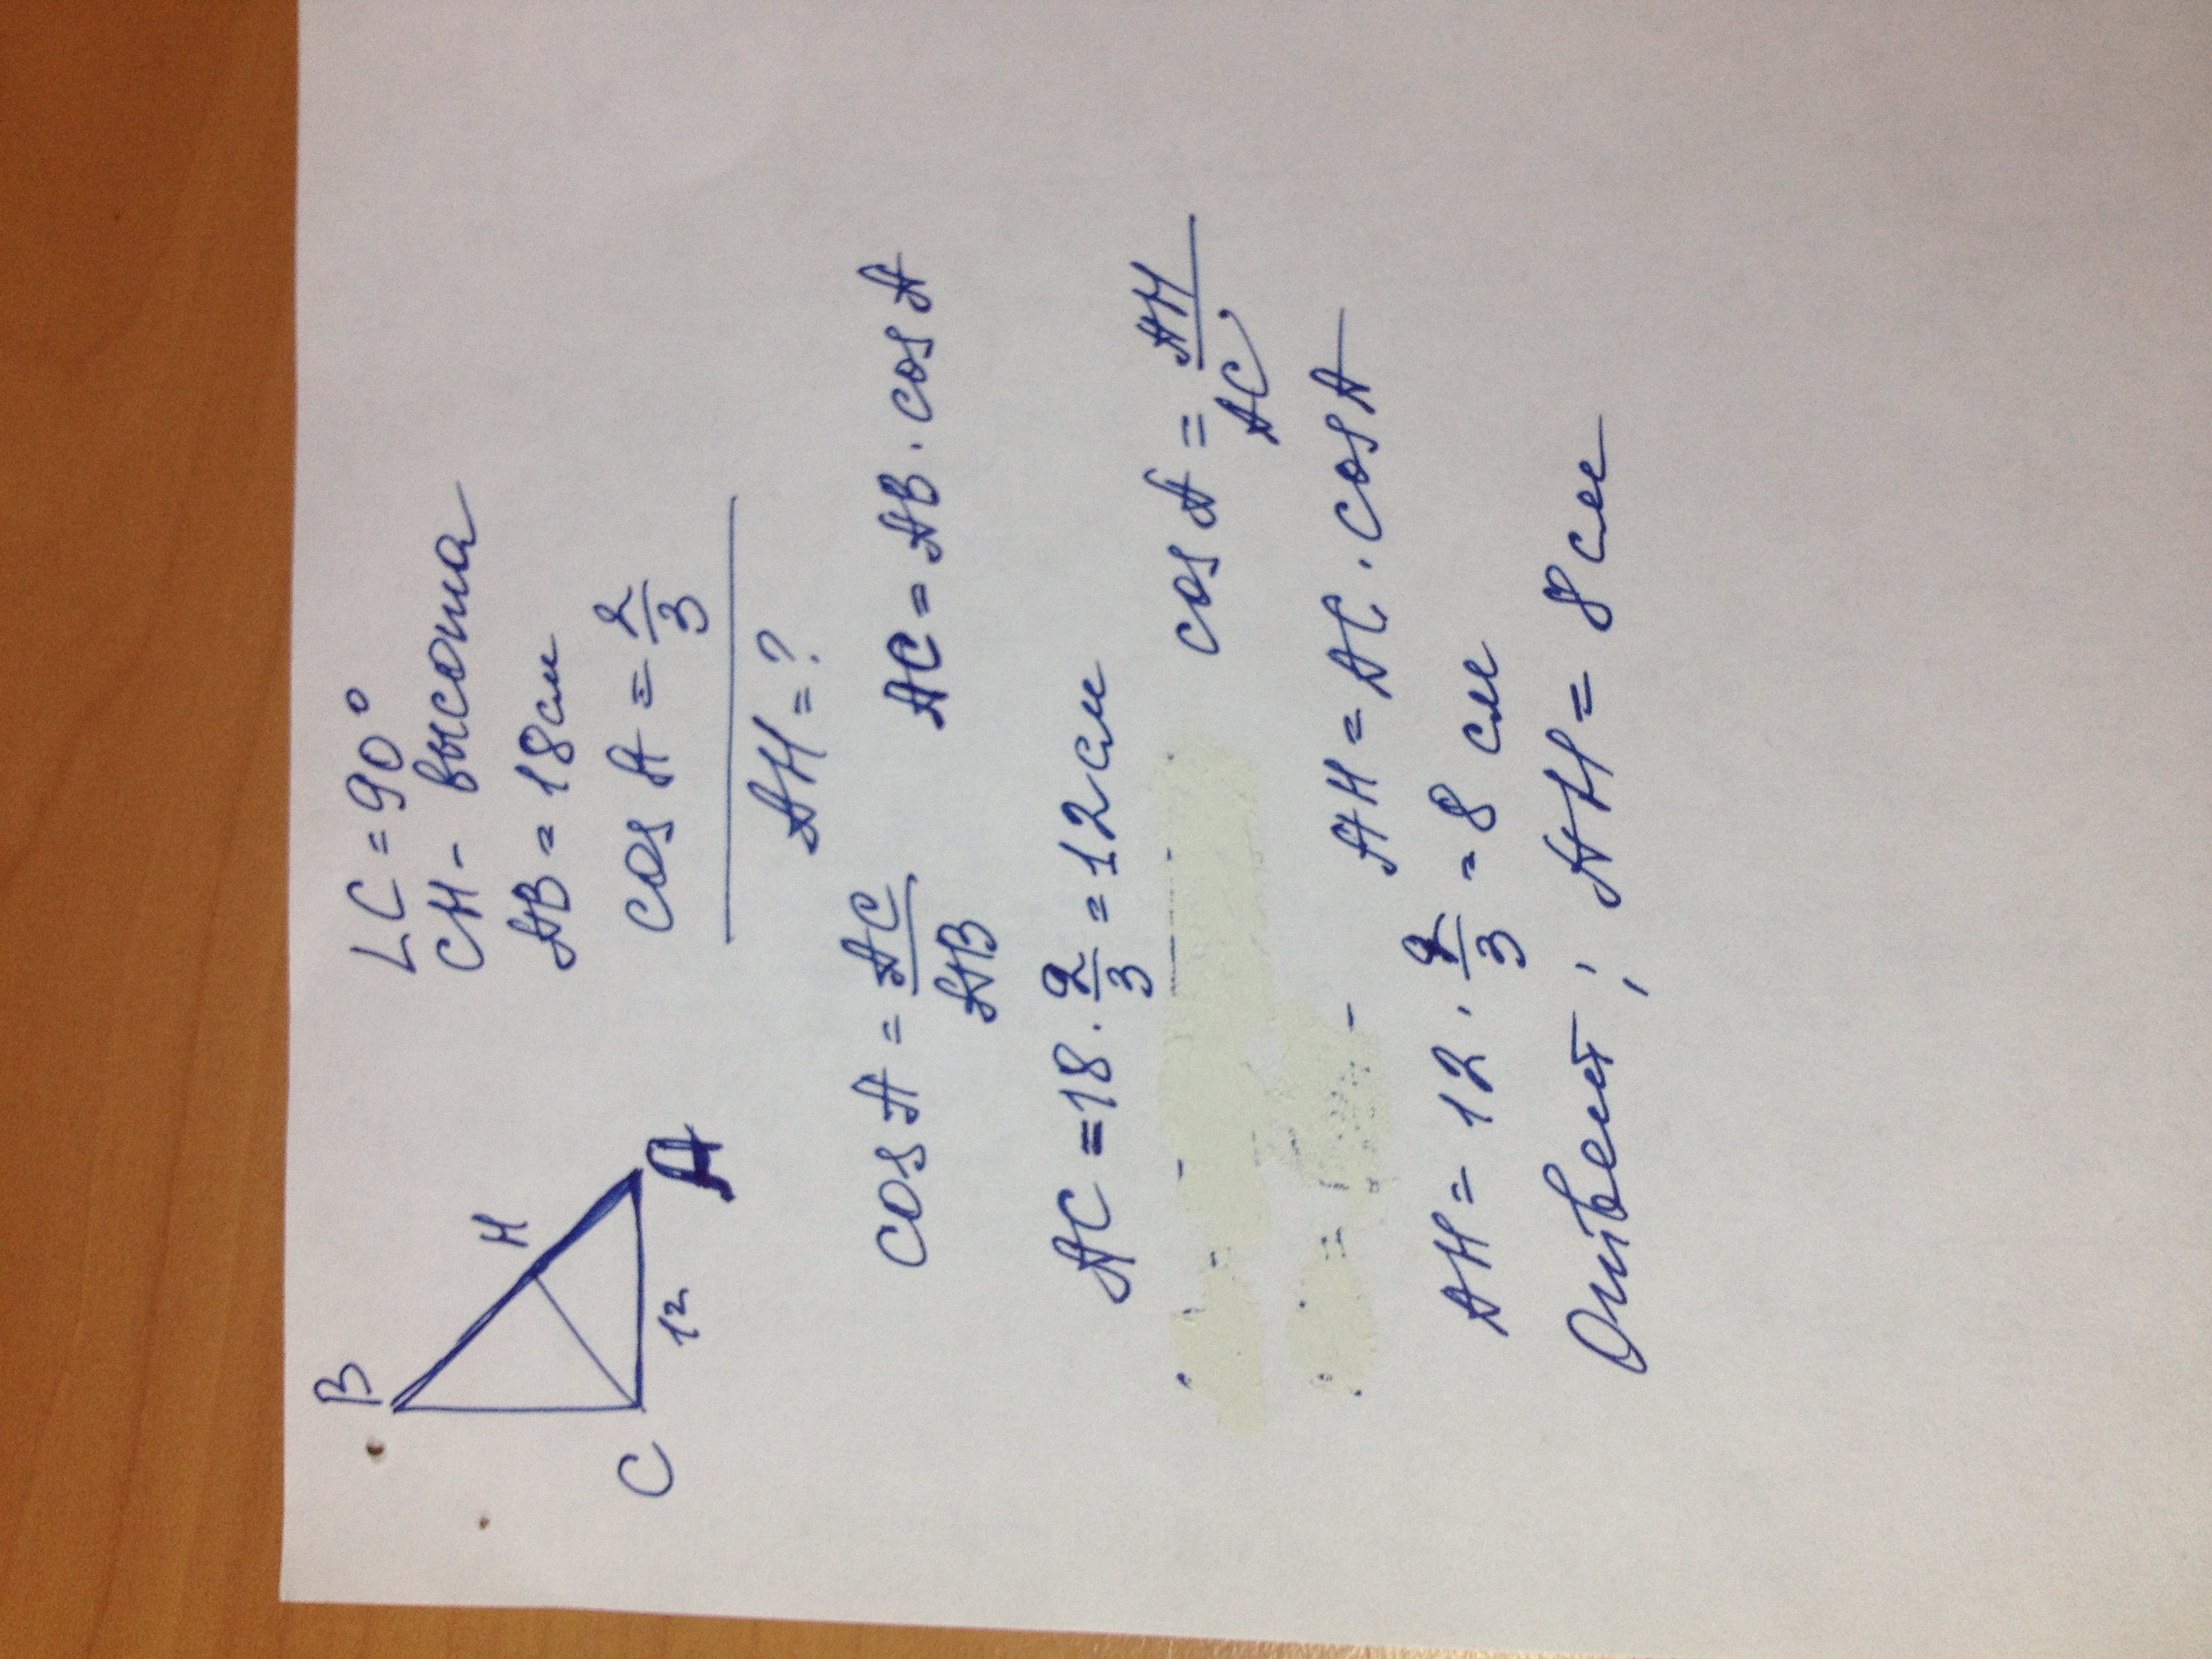 B
H
C
A
12
∠C = 90°
CH - высота
AB = 18 см
cos A = 2/3
AH = ?
cos A = AC/AB AC = AB · cos A
AC = 18 · 2/3 = 12 см
cos A = AH/AC
AH = AC · cos A
AH = 12 · 2/3 = 8 см
Ответ; AH = 8 см